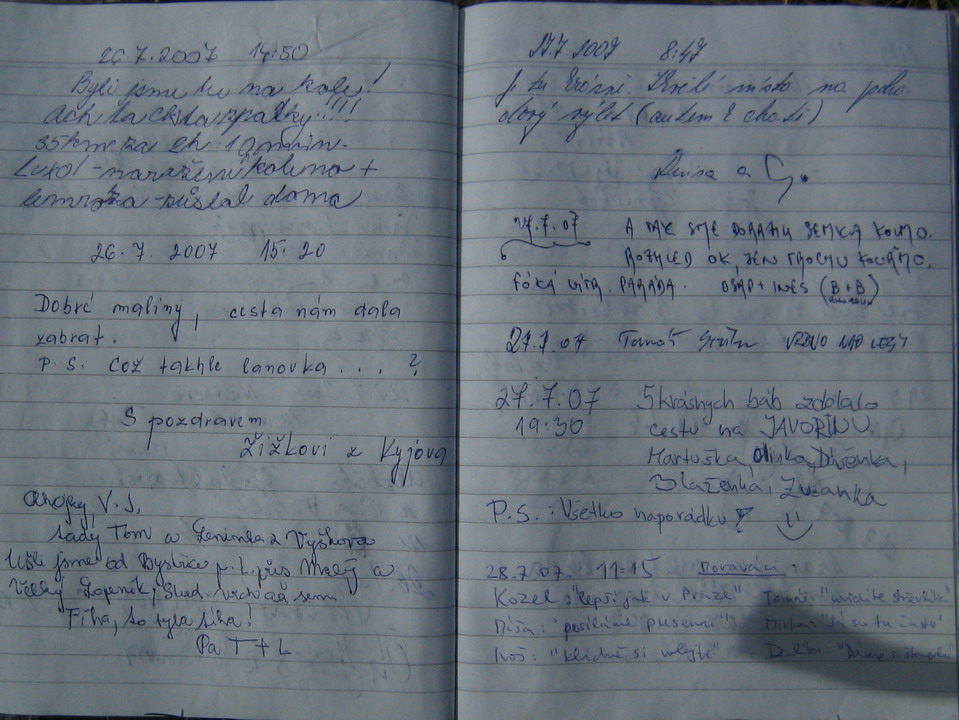 26.7.2007 14:50
Byli jsme tu na kole!
Ach ta cesta zpátky!!!!
35km za 2h 10min.
naražené koleno +
zůstal doma
26.7. 2007 15.20
Dobré maliny, cesta nám dala
zabrat.
P.S. Což takhle lanovka . . . . ?
S pozdravem
Žižkovi z Kyjova
Ahojky, V.J,
tady Tom a Leninka z Vyškova
Ušli jsme od Bystřice p.L. přes Malý a
Velký Lopeník, Stud. vrch až sem
Fíha, to byla síla!
Pa T+L
27.7 2007 8:47
Je tu krásně. Skvělé místo na poho-
dový výlet (autem & chatí)
Denisa a G.
27.7.07 A TAK SME DORAZILI SEMKA KOLMO.
ROZHLED OK, JEN TROCHU KOUŘMO.
FÓKÁ VÍTR. PARÁDA. INES (B+B)
27.7.07 Tomáš
27.7.07 5 krásnych báb zdolalo
19:30 cestu na JAVORINU
Martuška, Olinka,
Blaženka, Zuzanka
P.S.: Všetko naporádku!
28.7.07. 11:15 Moraváci:
Kozel: "lepší jak v Praze" Tomáš:
Míša: "posíláme pusenu"
Ivoš: "klidně si volejte" Dalibor: